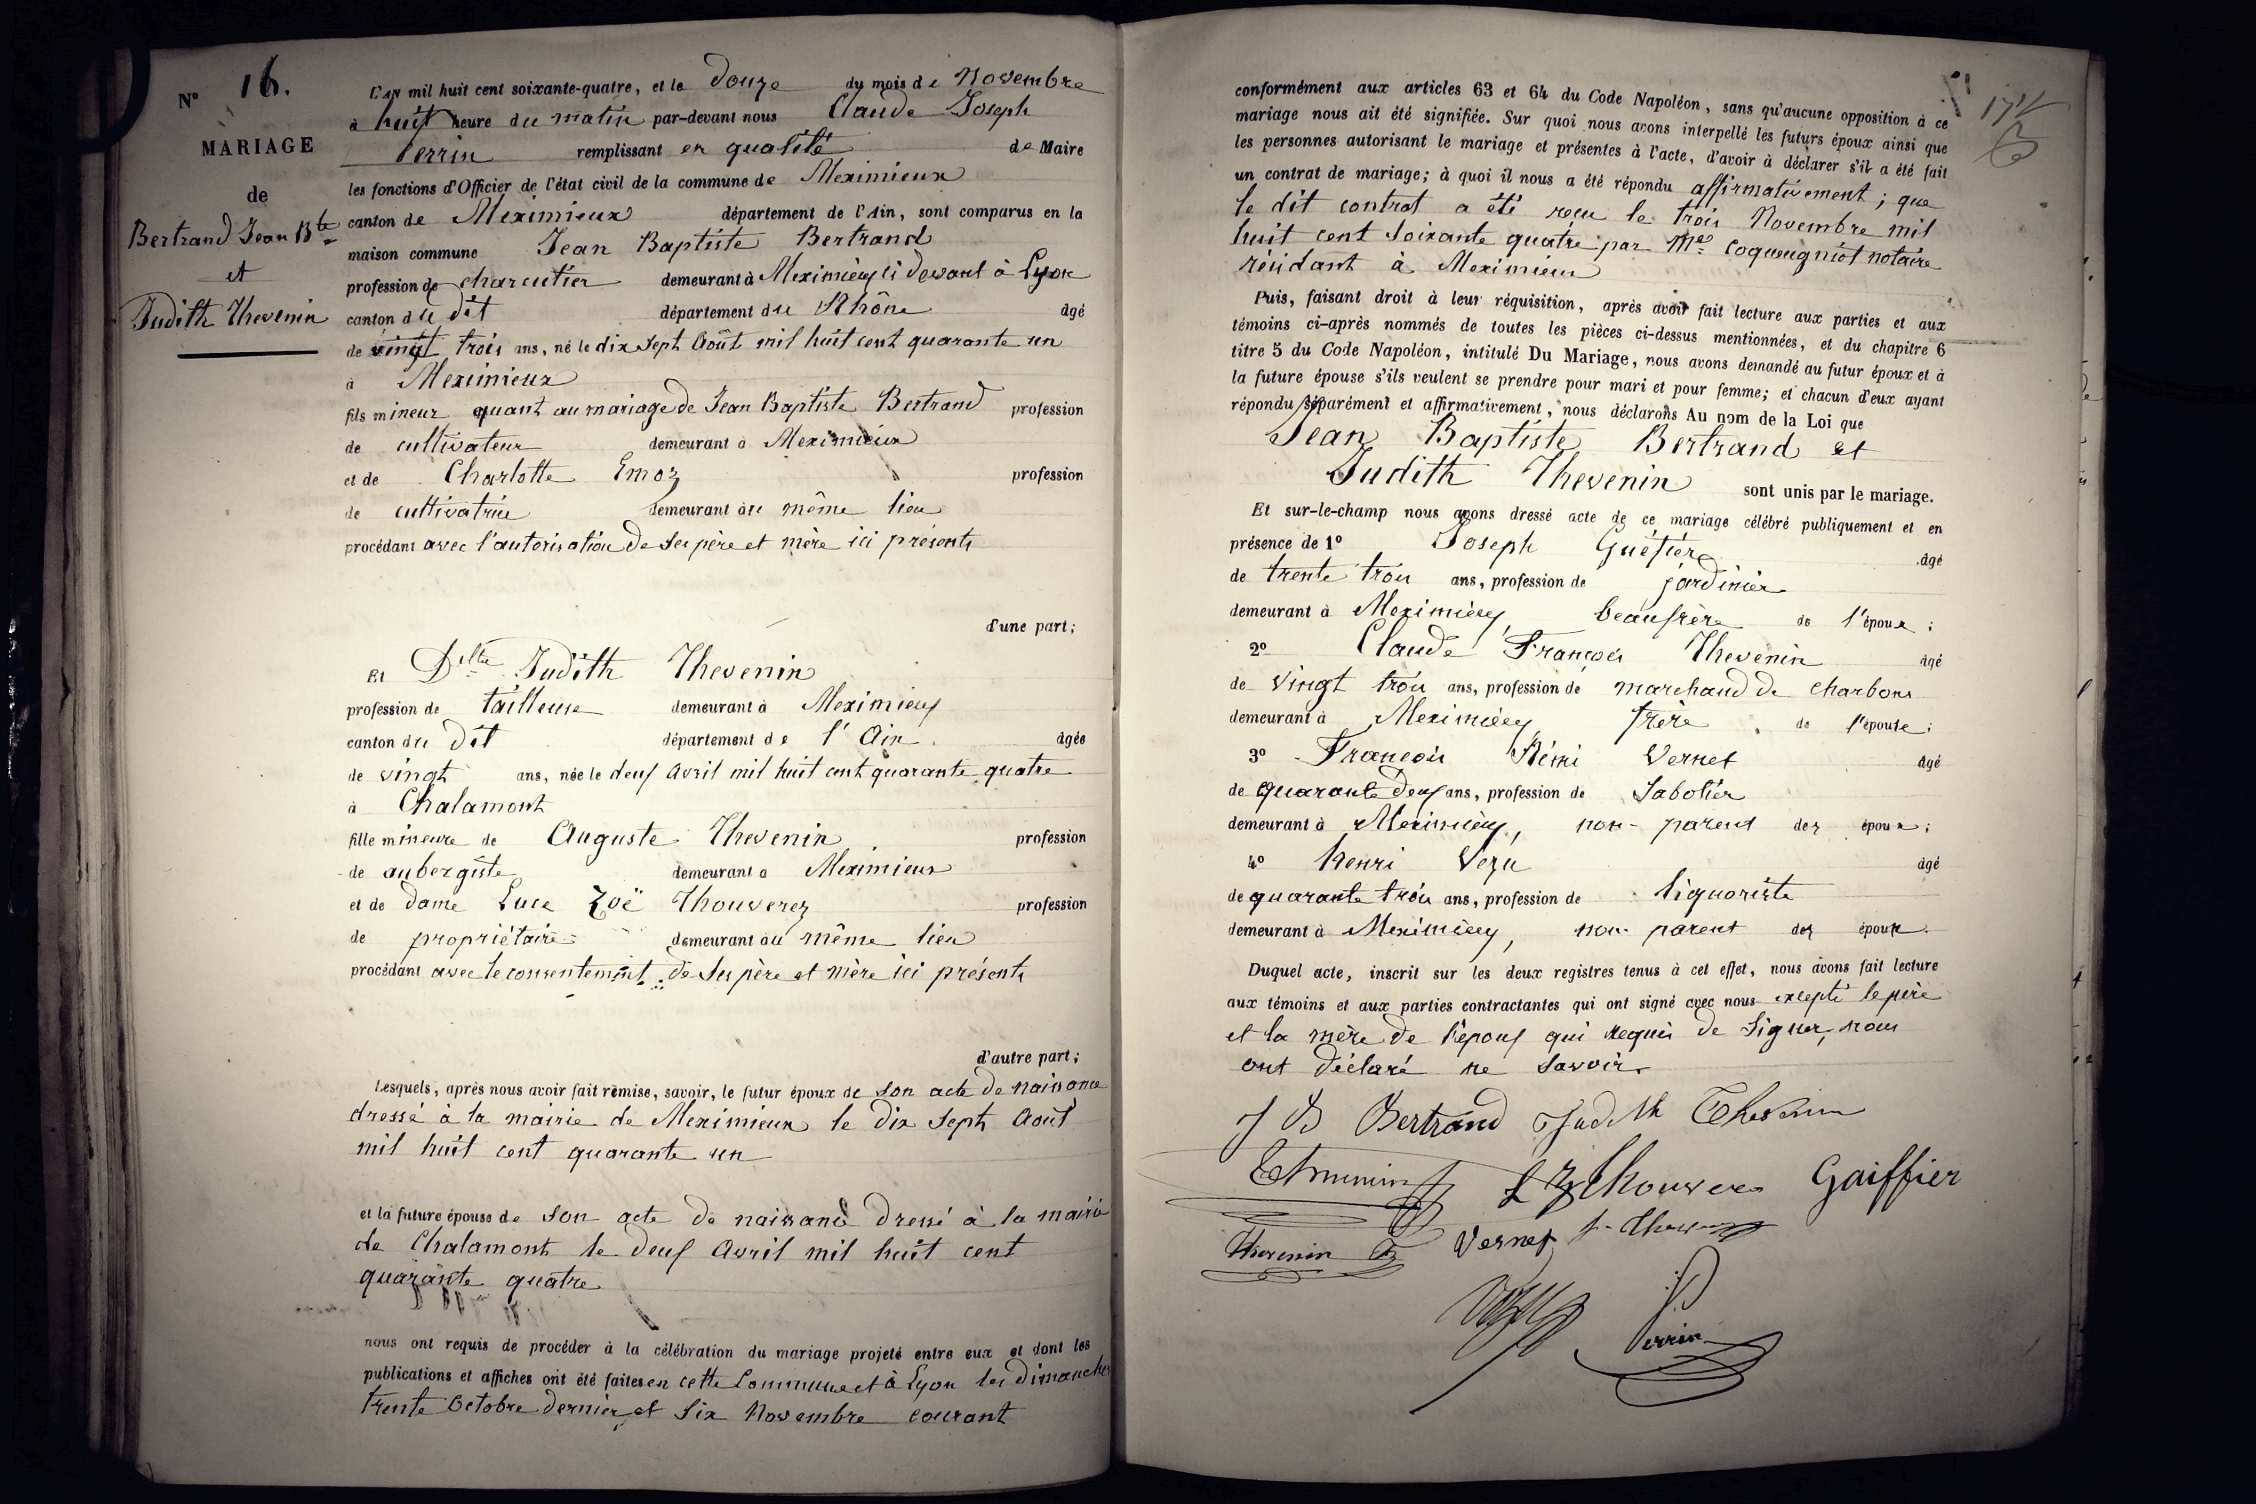 N° 16.
MARIAGE
de
Bertrand Jean Bte
et
Judith Thevenin
L'AN mil huit cent soixante-quatre, et le douze du mois de Novembre
à huit heure du matin par-devant nous Claude Joseph
Perrin remplissant en qualité de Maire
les fonctions d'Officier de l'état civil de la commune de Meximieux
canton de Meximieux département de l'Ain, sont comparus en la
maison commune Jean Baptiste Bertrand
profession de charcutier demeurant à Meximieux ci devant à Lyon
canton du dit département du Rhône âgé
de vingt trois ans, né le dix Sept Août mil huit cent quarante un
à Meximieux
fils mineur quant au mariage de Jean Baptiste Bertrand profession
de cultivateur demeurant à Meximieux
et de Charlotte Emoz profession
de cultivatrice demeurant au même lieu
procédant avec l'autorisation de Ses père et mère ici présents
d'une part;
Et Delle Judith Thevenin
profession de tailleuse demeurant à Meximieux
canton du dit département de l'Ain âgée
de vingt ans, née le deux Avril mil huit cent quarante quatre
à Chalamont
fille mineure de Auguste Thevenin profession
de aubergiste demeurant à Meximieux
et de dame Luce Zoë Thouverez profession
de propriétaire demeurant au même lieu
procédant avec le consentement de Ses père et mère ici présents
d'autre part;
Lesquels, après nous avoir fait remise, savoir, le futur époux de son acte de naissance
dressé à la mairie de Meximieux le dix Sept Août
mil huit cent quarante un
et la future épouse de son acte de naissance dressé à la mairie
de Chalamont le deux Avril mil huit cent
quarante quatre
nous ont requis de procéder à la célébration du mariage projeté entre eux et dont les
publications et affiches ont été faites en cette Commune et à Lyon les dimanches
trente Octobre dernier et Six Novembre courant
conformément aux articles 63 et 64 du Code Napoléon, sans qu'aucune opposition à ce
mariage nous ait été signifiée. Sur quoi nous avons interpellé les futurs époux ainsi que
les personnes autorisant le mariage et présentes à l'acte, d'avoir à déclarer s'il a été fait
un contrat de mariage; à quoi il nous a été répondu affirmativement; que
le dit contrat a été reçu le trois Novembre mil
huit cent Soixante quatre par Me Coqueugniot notaire
résidant à Meximieux
Puis, faisant droit à leur réquisition, après avoir fait lecture aux parties et aux
témoins ci-après nommés de toutes les pièces ci-dessus mentionnées, et du chapitre 6
titre 5 du Code Napoléon, intitulé Du Mariage, nous avons demandé au futur époux et à
la future épouse s'ils veulent se prendre pour mari et pour femme; et chacun d'eux ayant
répondu séparément et affirmativement, nous déclarons Au nom de la Loi que
Jean Baptiste Bertrand et
Judith Thevenin sont unis par le mariage.
Et sur-le-champ nous avons dressé acte de ce mariage célébré publiquement et en
présence de 1° Joseph âgé
de trente trois ans, profession de jardinier
demeurant à Meximieux, beaufrère de l'époux;
2° Claude François Thevenin âgé
de vingt trois ans, profession de marchand de charbons
demeurant à Meximieux, frère de l'épouse;
3° François Rémi Vernet âgé
de quarante deux ans, profession de Sabotier
demeurant à Meximieux, non-parent des époux;
4° Henri Vezu âgé
de quarante trois ans, profession de liquoriste
demeurant à Meximieux, non parent des époux.
Duquel acte, inscrit sur les deux registres tenus à cet effet, nous avons fait lecture
aux témoins et aux parties contractantes qui ont signé avec nous excepté le père
et la mère de l'époux qui requis de Signer, nous
ont déclaré ne Savoir.
J B Bertrand Judith Thevenin
L Z Thouverez Gaiffier
Thevenin Vernet
Perrin